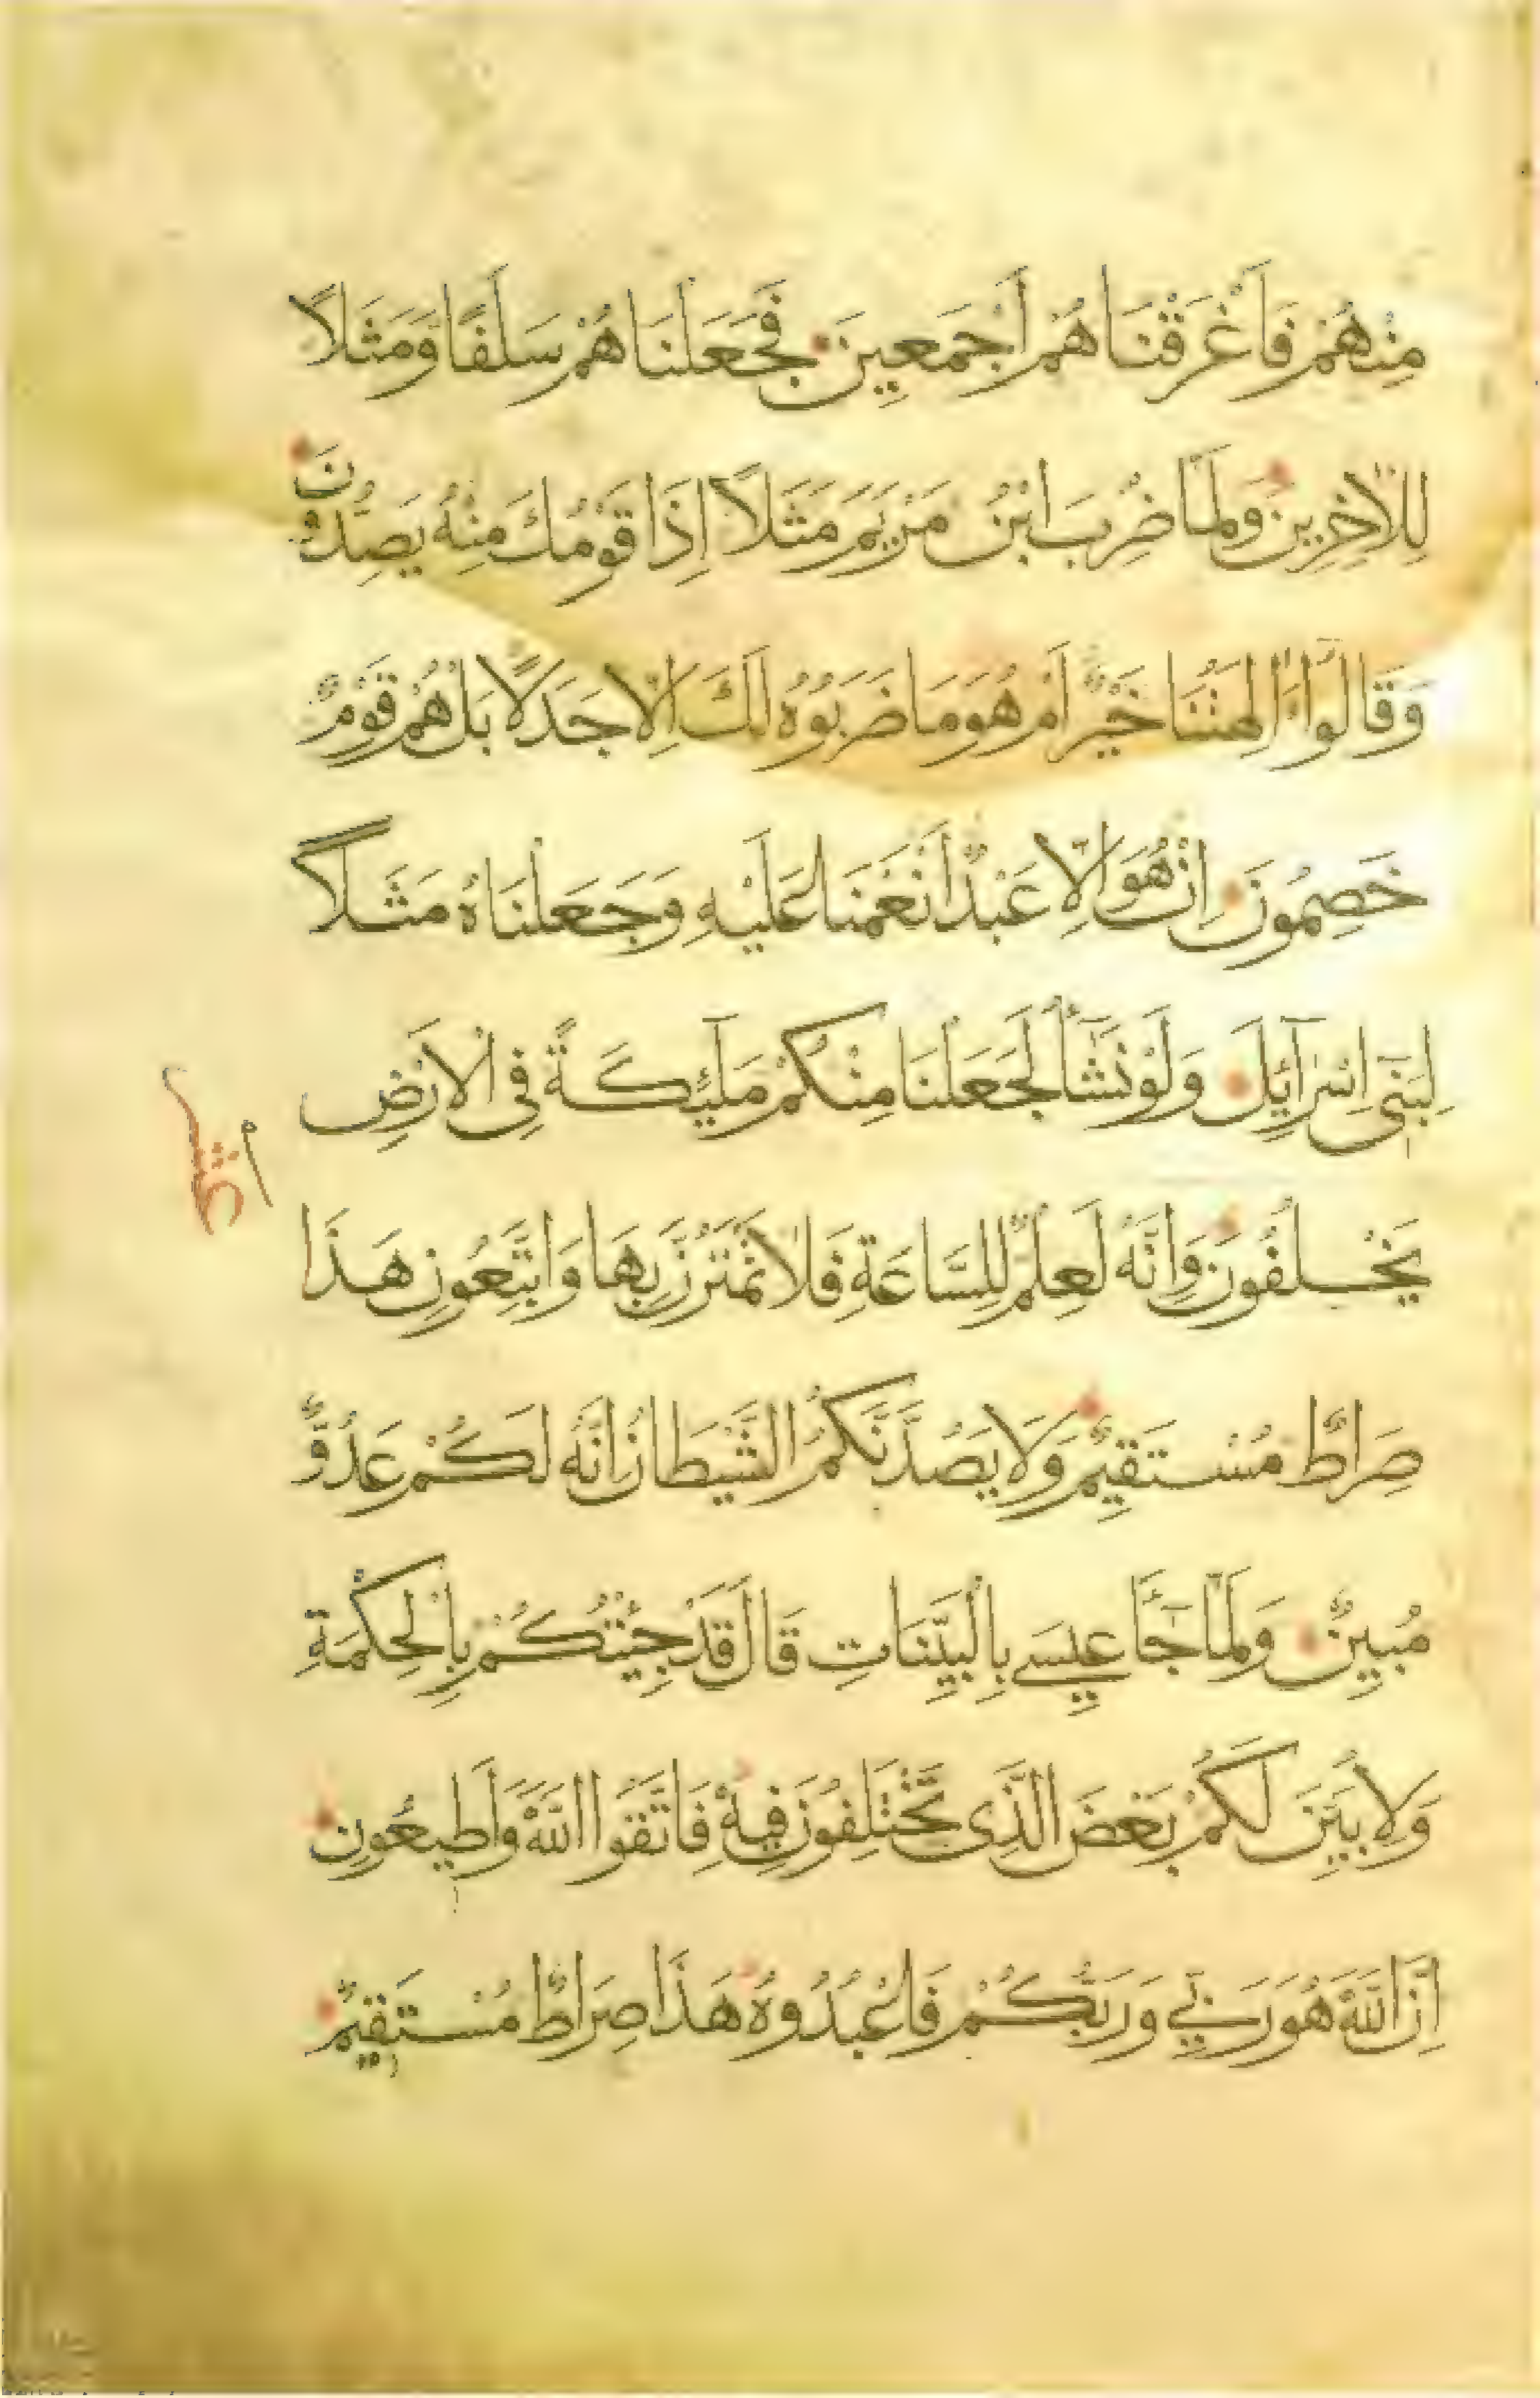 مِنْهُمْ فَاَغْرَقْنَاهُمْ اَجْمَعِينَ فَجَعَلْنَاهُمْ سَلَفًا وَمَثَلًا
لِلْاٰخِرِينَ وَلَمَّا ضُرِبَ ابْنُ مَرْيَمَ مَثَلًا اِذَا قَوْمُكَ مِنْهُ يَصِدُّونَ
وَقَالُوا ءَاٰلِهَتُنَا خَيْرٌ اَمْ هُوَ مَا ضَرَبُوهُ لَكَ اِلَّا جَدَلًا بَلْ هُمْ قَوْمٌ
خَصِمُونَ اِنْ هُوَ اِلَّا عَبْدٌ اَنْعَمْنَا عَلَيْهِ وَجَعَلْنَاهُ مَثَلًا
لِبَنِي اِسْرَآئِلَ وَلَوْ نَشَآءُ لَجَعَلْنَا مِنْكُمْ مَلٰٓئِكَةً فِي الْاَرْضِ
يَخْلُفُونَ وَاِنَّهُ لَعِلْمٌ لِلسَّاعَةِ فَلَا تَمْتَرُنَّ بِهَا وَاتَّبِعُونِ هَذَا
صِرَاطٌ مُسْتَقِيمٌ وَلَا يَصُدَّنَّكُمُ الشَّيْطَانُ اِنَّهُ لَكُمْ عَدُوٌّ
مُبِينٌ وَلَمَّا جَآءَ عِيسَى بِالْبَيِّنَاتِ قَالَ قَدْ جِئْتُكُمْ بِالْحِكْمَةِ
وَلِاُبَيِّنَ لَكُمْ بَعْضَ الَّذِي تَخْتَلِفُونَ فِيهِ فَاتَّقُوا اللَّهَ وَاَطِيعُونِ
اِنَّ اللَّهَ هُوَ رَبِّي وَرَبُّكُمْ فَاعْبُدُوهُ هَذَا صِرَاطٌ مُسْتَقِيمٌ